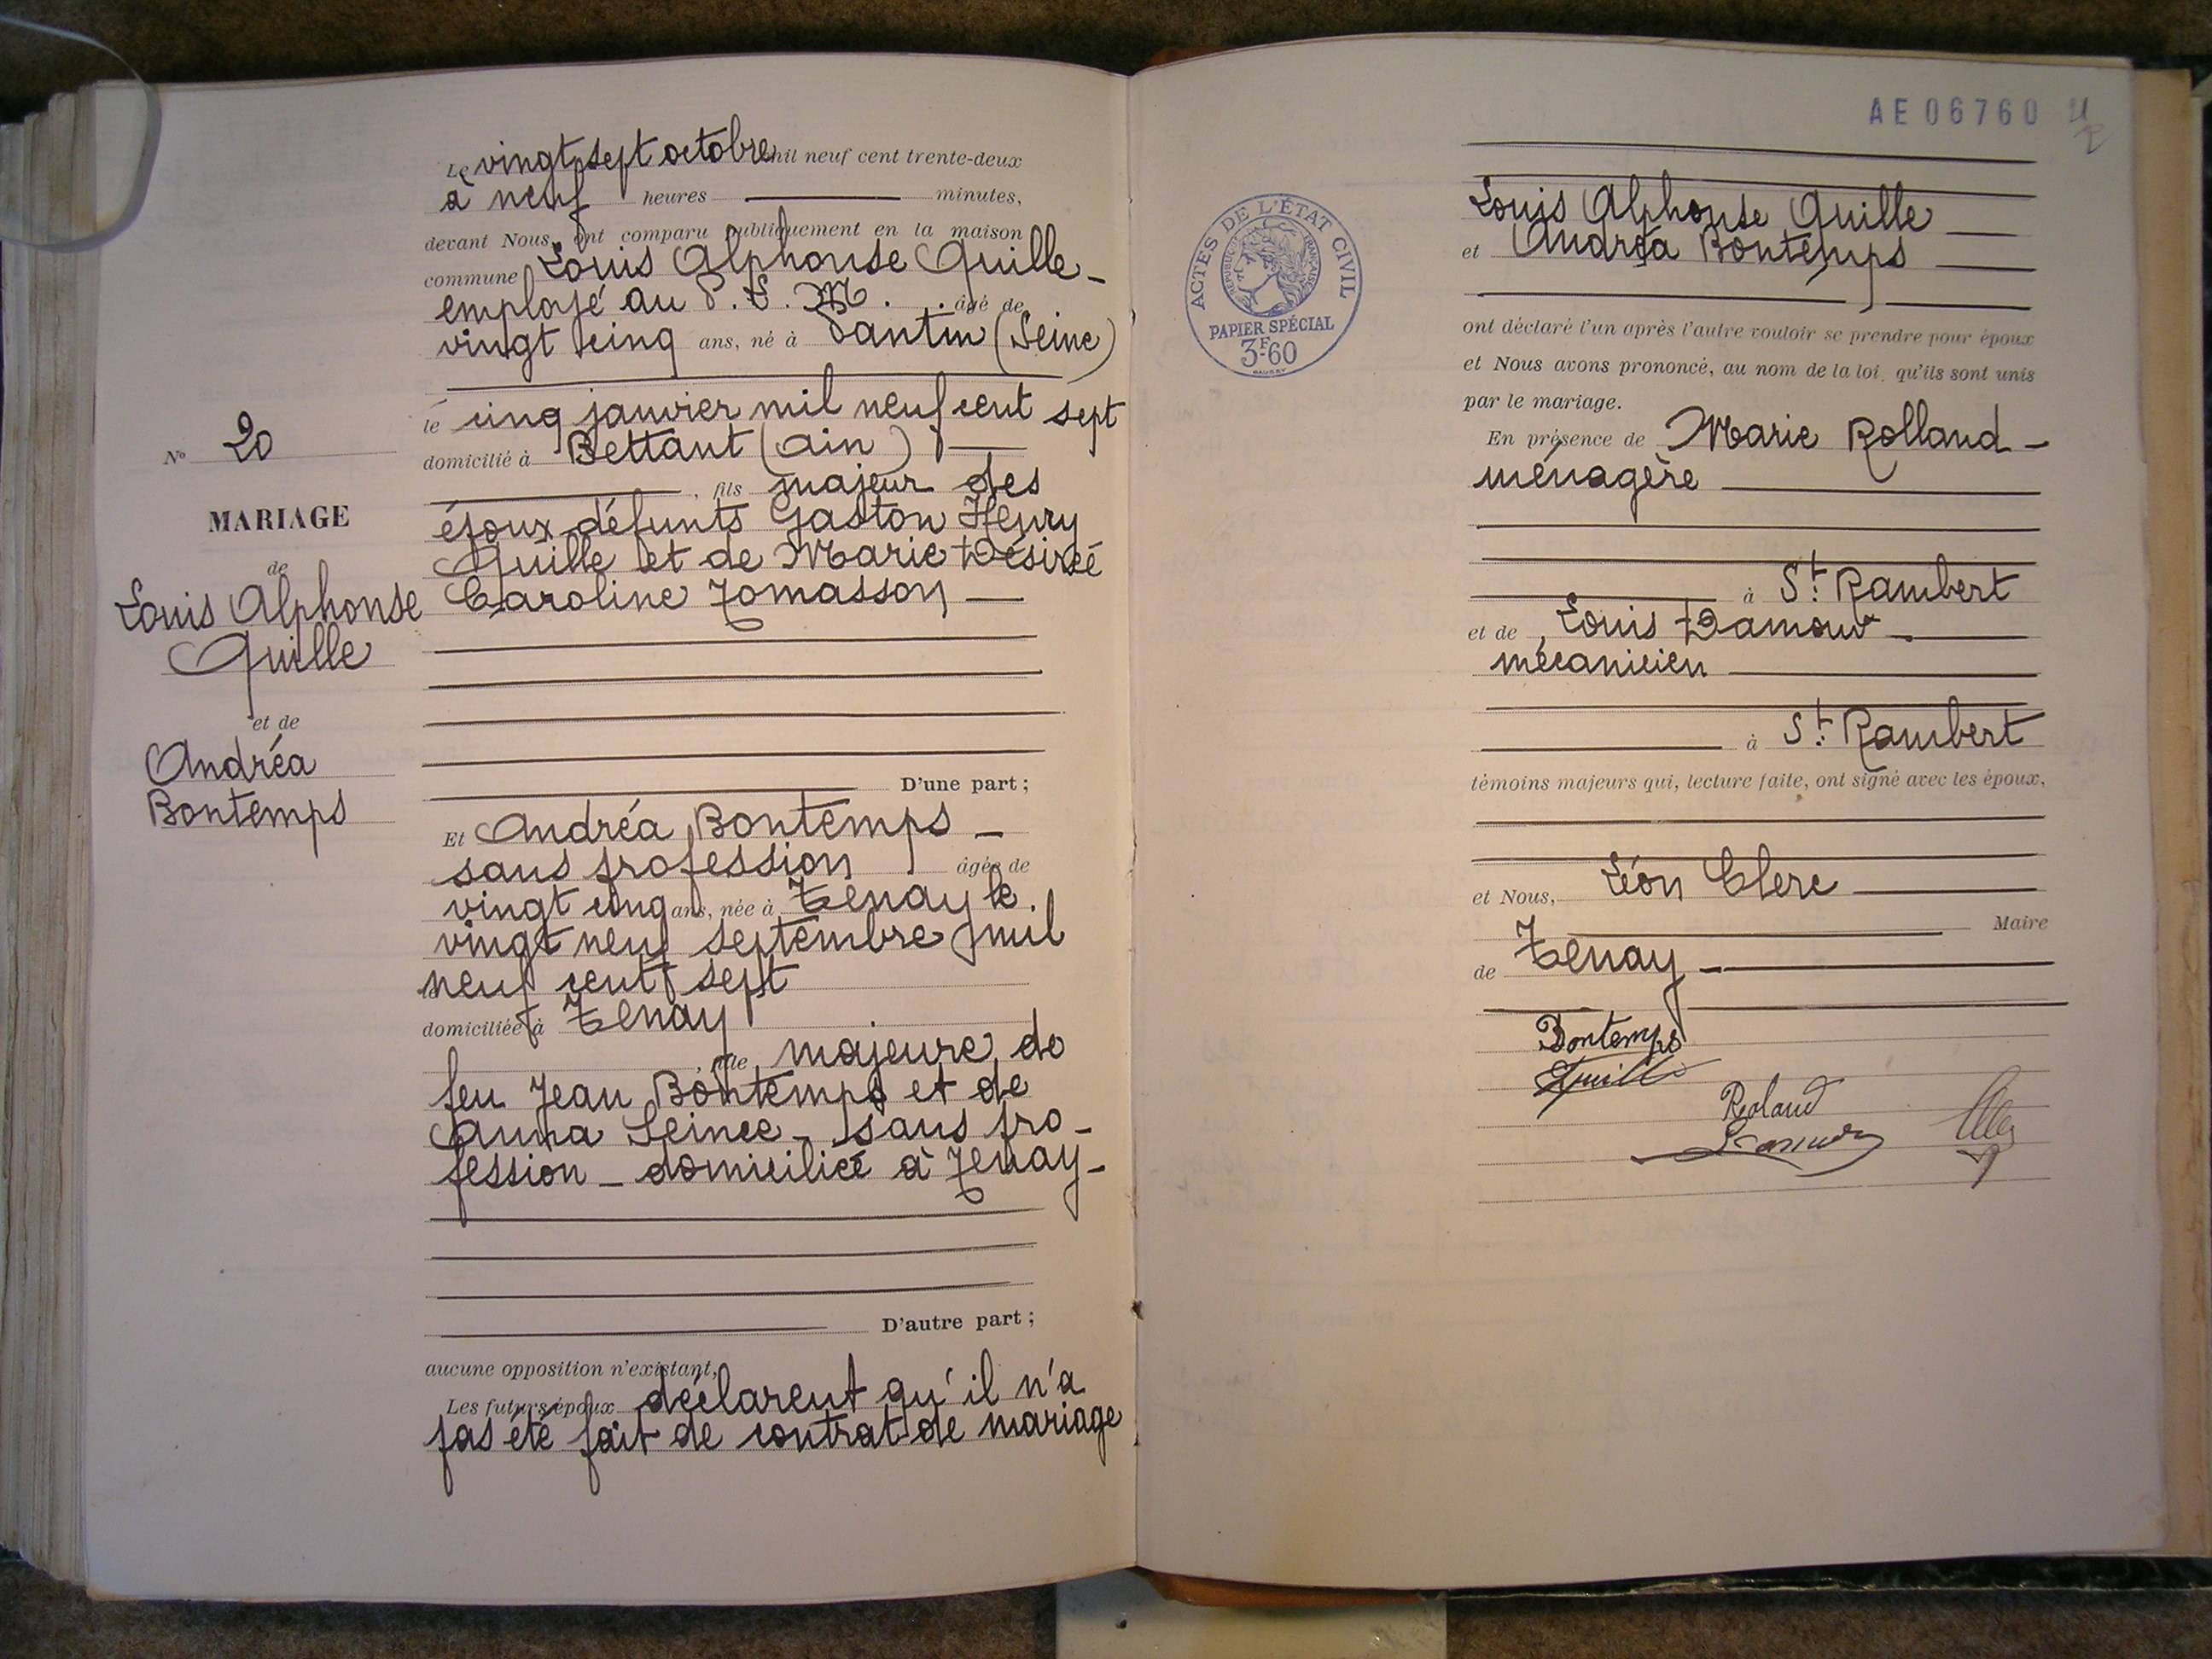 Le vingt sept octobre mil neuf cent trente-deux
à neuf heures minutes,
devant Nous, ont comparu publiquement en la maison
commune Louis Alphonse Quille
employé au P. L. M. âgé de
vingt cinq ans, né à Pantin (Seine)
le cinq janvier mil neuf cent sept
domicilié à Bettant (Ain)
, fils majeur des
époux défunts Gaston Henry
Quille et de Marie Désirée
Caroline Tomasson
N° 20
MARIAGE
de
Louis Alphonse
Quille
et de
Andréa
Bontemps
D'une part ;
Et Andréa Bontemps
sans profession âgée de
vingt cinq ans, née à Tenay le
vingt neuf septembre mil
neuf cent sept
domiciliée à Tenay
, fille majeure de
feu Jean Bontemps et de
Anna Seince - sans pro-
fession - domiciliée à Tenay -
D'autre part ;
aucune opposition n'existant,
Les futurs époux déclarent qu'il n'a
pas été fait de contrat de mariage
AE 06760
ACTES DE L'ÉTAT CIVIL
RÉPUBLIQUE FRANÇAISE
PAPIER SPÉCIAL
3F60
Louis Alphonse Quille
et Andréa Bontemps
ont déclaré l'un après l'autre vouloir se prendre pour époux
et Nous avons prononcé, au nom de la loi, qu'ils sont unis
par le mariage.
En présence de Marie Rolland -
ménagère
à St Rambert
et de Louis Damour
mécanicien
à St Rambert
témoins majeurs qui, lecture faite, ont signé avec les époux,
et Nous, Léon Clerc
Maire
de Tenay
Bontemps
Quille
Roland